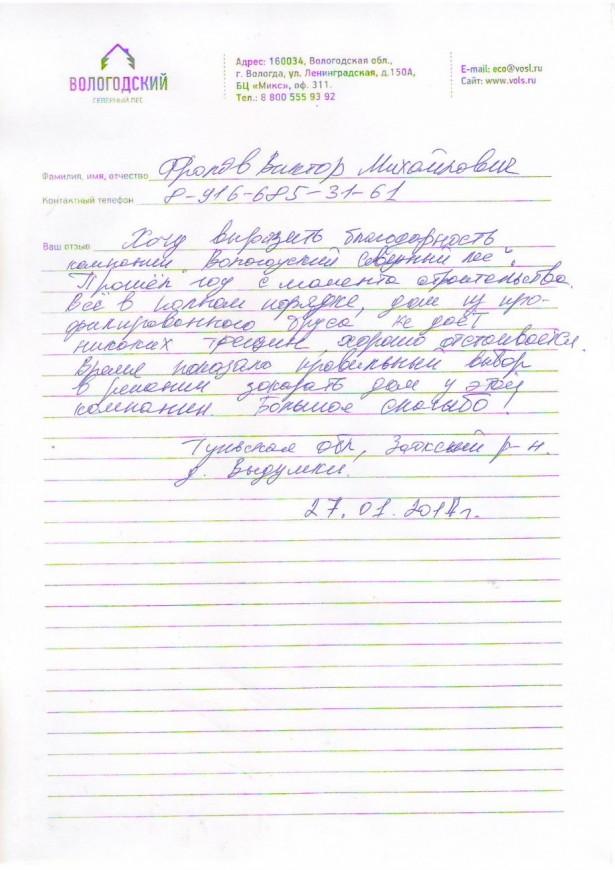 ВОЛОГОДСКИЙ
СЕВЕРНЫЙ ЛЕС
Адрес: 160034, Вологодская обл.,
г. Вологда, ул. Ленинградская, д.150А,
БЦ «Микс», оф. 311.
Тел.: 8 800 555 93 92
E-mail: eco@vosl.ru
Сайт: www.vols.ru
Фамилия, имя, отчество Фролов Виктор Михайлович
Контактный телефон 8-916-685-31-61
Ваш отзыв Хочу выразить благодарность
компании "Вологодский северный лес".
Прошёл год с момента строительства.
Всё в полном порядке, дом из про-
филированного бруса не даёт
никаких трещин, хорошо отстаивается.
Время показало правильный выбор
в решении заказать дом у этой
компании. Большое спасибо!
Тульская обл, Заокский р-н.
д. Выдумки.
27.01.2014г.